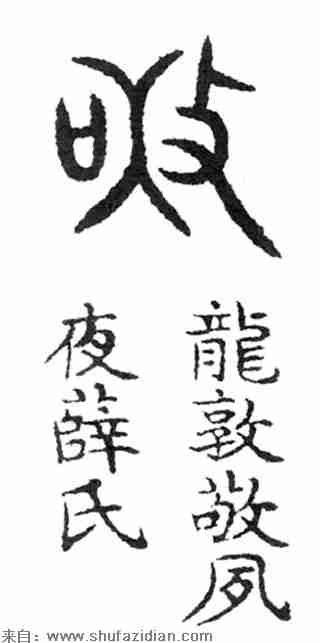 敬
龍敦敬夙
夜薛氏
来自：www.shufazidian.com